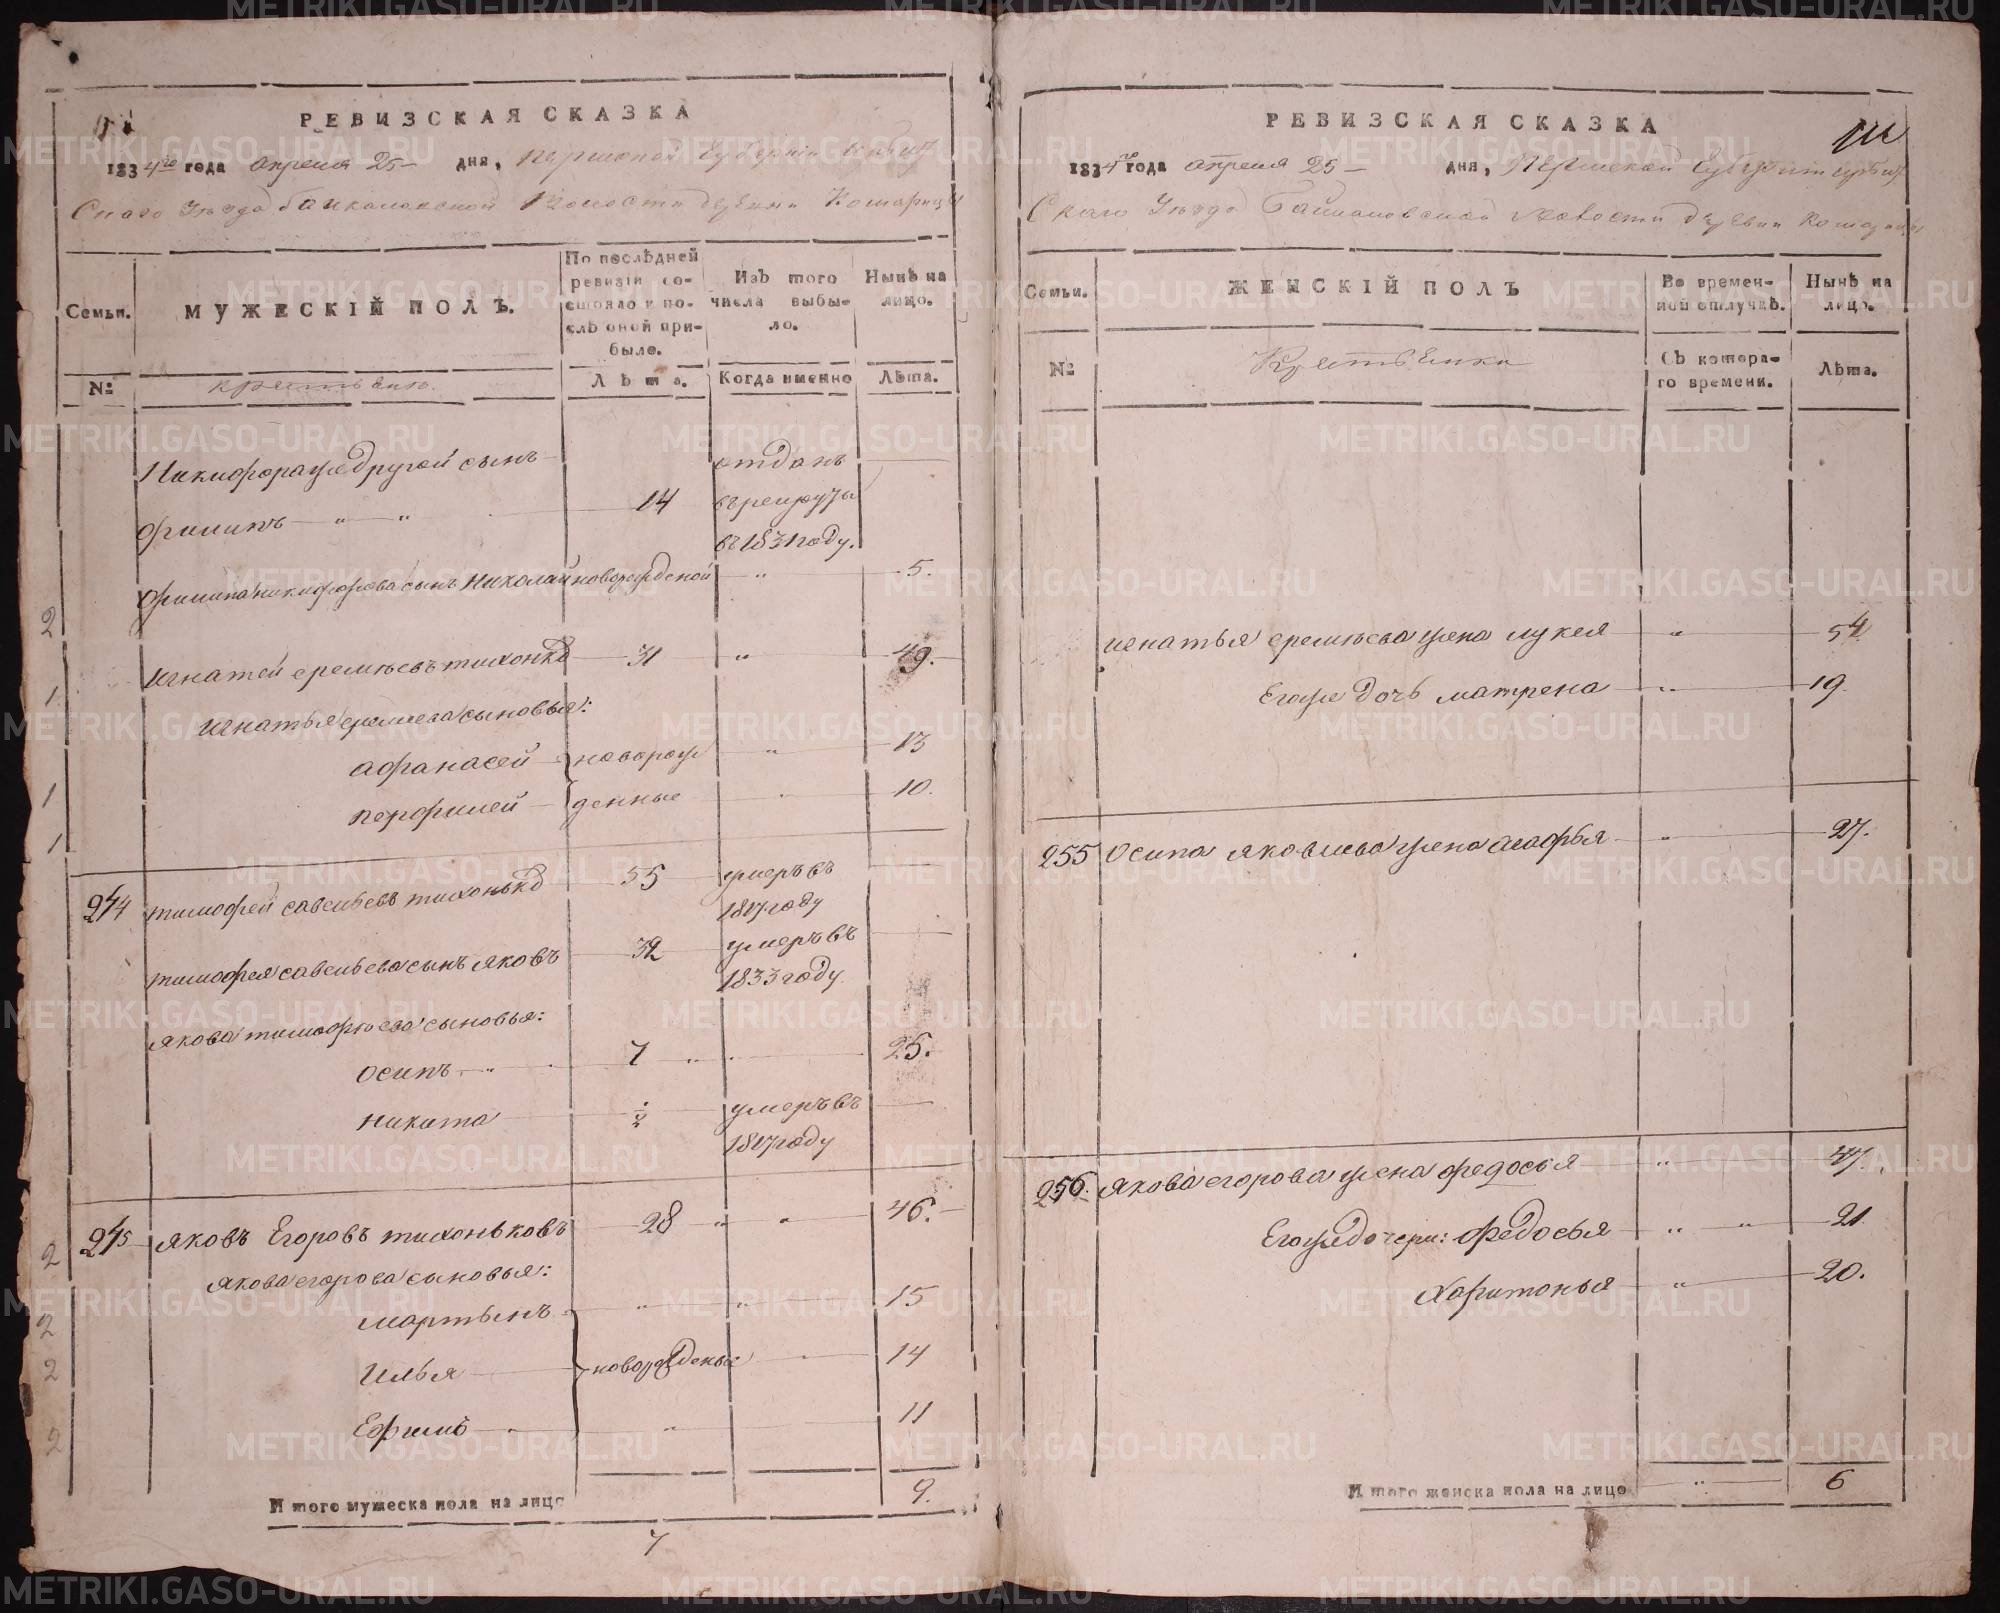 РЕВИЗСКАЯ СКАЗКА
1834го года апреля 25 дня, Пермской Губернiи Ирбит
Скаго Уѣзда Байкаловской Волости деревни
Семьи.
МУЖЕСКIЙ ПОЛЪ.
По послѣдней ревизiи состояло и послѣ оной прибыло.
Изъ того числа выбыло.
Нынѣ на лицо.
№
крестьяне
Лѣта.
Когда именно
Лѣта.
Никифора же другой сынъ
Филипъ 14 отданъ въ рекруты въ 1831 году.
Филипа Никифорова сынъ Николай новорожденой 5.
2
Игнатей Еремѣевъ 31 49.
1
Игнатья сыновья:
Афанасей новорож 13
1
Перфилей денные 10.
1
274 Тимофей Савельевъ 55 умеръ въ 1817 году
Тимофея Савельева сынъ Яковъ 32 умеръ въ 1833 году
Якова Тимофеева сыновья:
Осипъ 7 25.
Никита умеръ въ 1817 году
2
275 Яковъ Егоровъ Тихоньковъ 28 46.
Якова Егорова сыновья:
2
Мартынъ 15
2
Илья новорожденые 14
2
Ефимъ 11
И того мужеска пола на лицо 9.
7
РЕВИЗСКАЯ СКАЗКА
1834го года апреля 25 дня, Пермской Губернiи Ирбит
Скаго Уѣзда Байкаловской Волости деревни
Семьи.
ЖЕНСКIЙ ПОЛЪ
Во временной отлучкѣ.
Нынѣ на лицо.
№
Съ котораго времени.
Лѣта.
Игнатья Еремѣева жена Лукея 54.
Его же дочь Матрена 19.
255 Осипа Яковлева жена Агафья 27.
256. Якова Егорова жена Федосья 47.
Его же дочери: Федосья 21.
Харитонья 20.
И того женска пола на лицо 6
METRIKI.GASO-URAL.RU